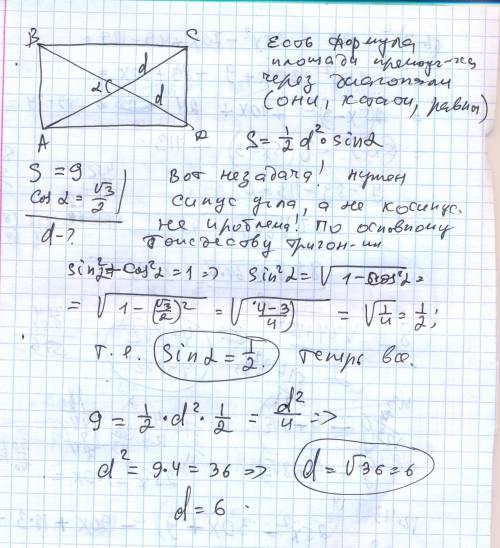 B C
d
α
d
A D
Есть формула
площади прямоуг-ка
через диагонали
(они, кстати, равны)
S = 1/2 d² · sinα
S = 9
cos α = √3/2
d - ?
Вот незадача! нужен
синус угла, а не косинус.
не проблема! По основному
тождесову тригон-ии
sin²α + cos²α = 1 => sin²α = √(1 - cos²α) =
= √(1 - (√3/2)²) = √((4-3)/4) = √(1/4) = 1/2;
т.е. sin α = 1/2. Теперь все.
9 = 1/2 · d² · 1/2 = d²/4 =>
d² = 9·4 = 36 => d = √36 = 6
d = 6.